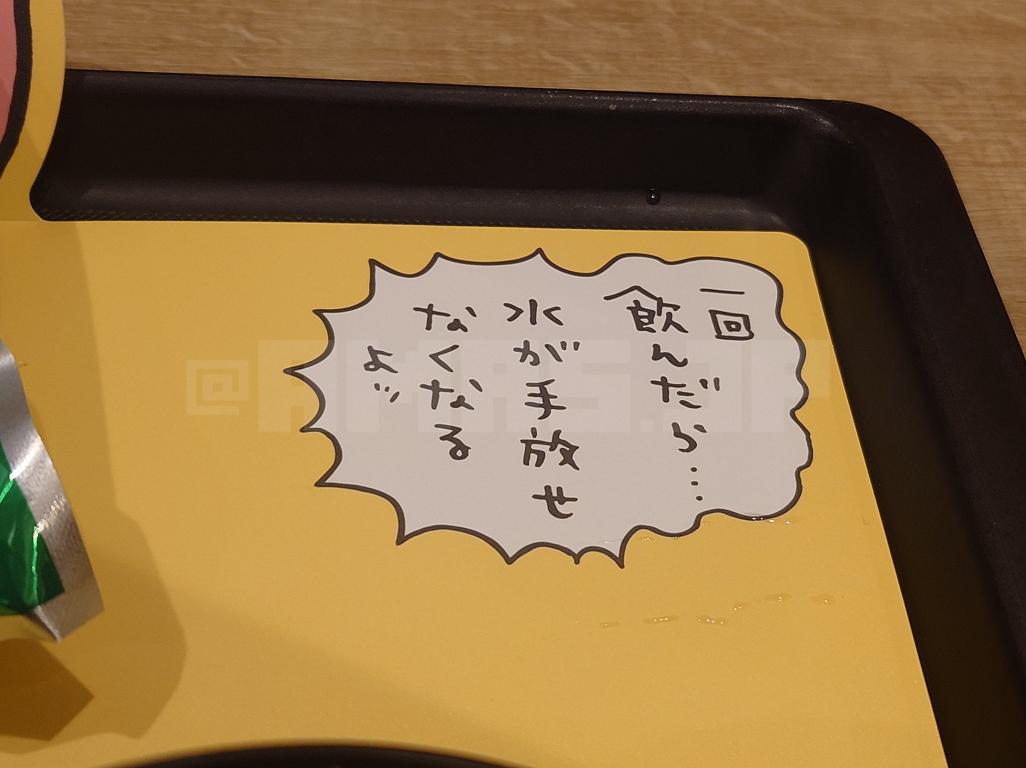 一回
飲んだら…
水が手放せ
なくなる
よ…
@AMAS.JP